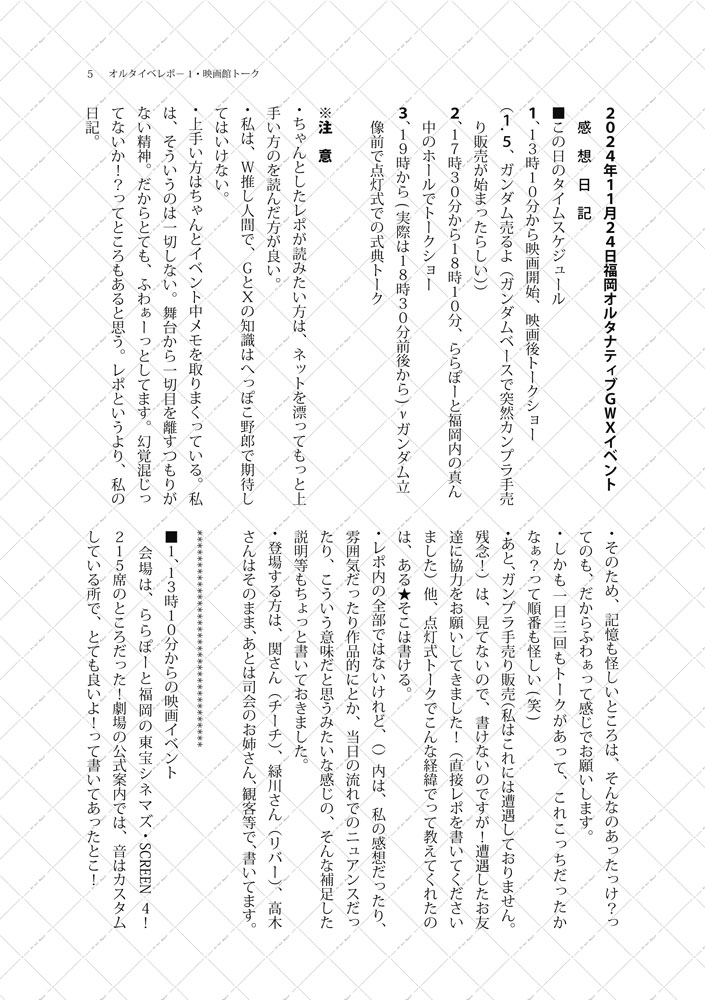 5　オルタイベレポー1・映画館トーク
2024年11月24日福岡オルタナティブGWXイベント
感想日記
■この日のタイムスケジュール
1、13時10分から映画開始、映画後トークショー
(1.5、ガンダム売るよ（ガンダムベースで突然カンプラ手売
り販売が始まったらしい))
2、17時30分から18時10分、ららぽーと福岡内の真ん
中のホールでトークショー
3、19時から(実際は18時30分前後から)νガンダム立
像前で点灯式での式典トーク
※注　意
・ちゃんとしたレポが読みたい方は、ネットを漂ってもっと上
手い方のを読んだ方が良い。
・私は、W推し人間で、GとXの知識はへっぽこ野郎で期待し
てはいけない。
・上手い方はちゃんとイベント中メモを取りまくっている。私
は、そういうのは一切しない。舞台から一切目を離すつもりが
ない精神。だからとても、ふわぁーっとしてます。幻覚混じっ
てないか！？ってところもあると思う。レポというより、私の
日記。
・そのため、記憶も怪しいところは、そんなのあったっけ？っ
てのも、だからふわぁって感じでお願いします。
・しかも一日三回もトークがあって、これこっちだったか
なぁ？って順番も怪しい(笑)
・あと、ガンプラ手売り販売(私はこれには遭遇しておりません。
残念！)は、見てないので、書けないのですが！遭遇したお友
達に協力をお願いしてきました！（直接レポを書いてください
ました）他、点灯式トークでこんな経緯でって教えてくれたの
は、ある★そこは書ける。
・レポ内の全部ではないけれど、()内は、私の感想だったり、
雰囲気だったり作品的にとか、当日の流れでのニュアンスだっ
たり、こういう意味だと思うみたいな感じの、そんな補足した
説明等もちょっと書いておきました。
・登場する方は、関さん（チーチ）、緑川さん（リバー）、高木
さんはそのまま、あとは司会のお姉さん、観客等で、書いてます。
******************************
■1、13時10分からの映画イベント
会場は、ららぽーと福岡の東宝シネマズ・SCREEN 4！
215席のところだった！劇場の公式案内では、音はカスタム
している所で、とても良いよ！って書いてあったとこ！